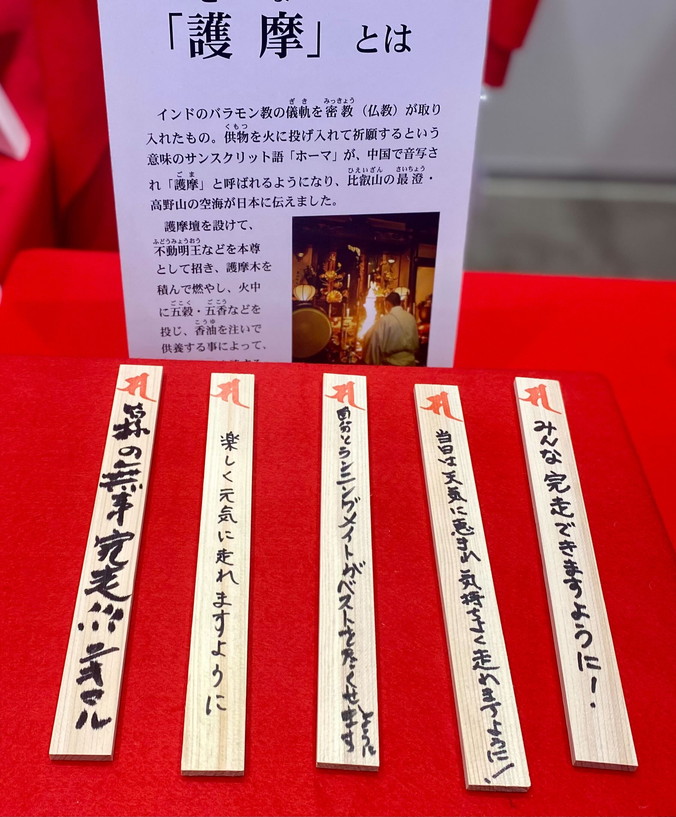 「護摩」とは
インドのバラモン教の儀軌を密教（仏教）が取り
入れたもの。供物を火に投げ入れて祈願するという
意味のサンスクリット語「ホーマ」が、中国で音写さ
れ「護摩」と呼ばれるようになり、比叡山の最澄・
高野山の空海が日本に伝えました。
護摩壇を設けて、
不動明王などを本尊
として招き、護摩木を
積んで燃やし、火中
に五穀・五香などを
投じ、香油を注いで
供養する事によって、
の無事完走!!!
楽しく元気に走れますように
自分とランニングメイトがベストを尽くせますように
当日は天気に恵まれ気持よく走れますように!
みんな完走できますように!